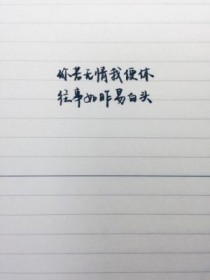 你若无情我便休
往事如昨易白头